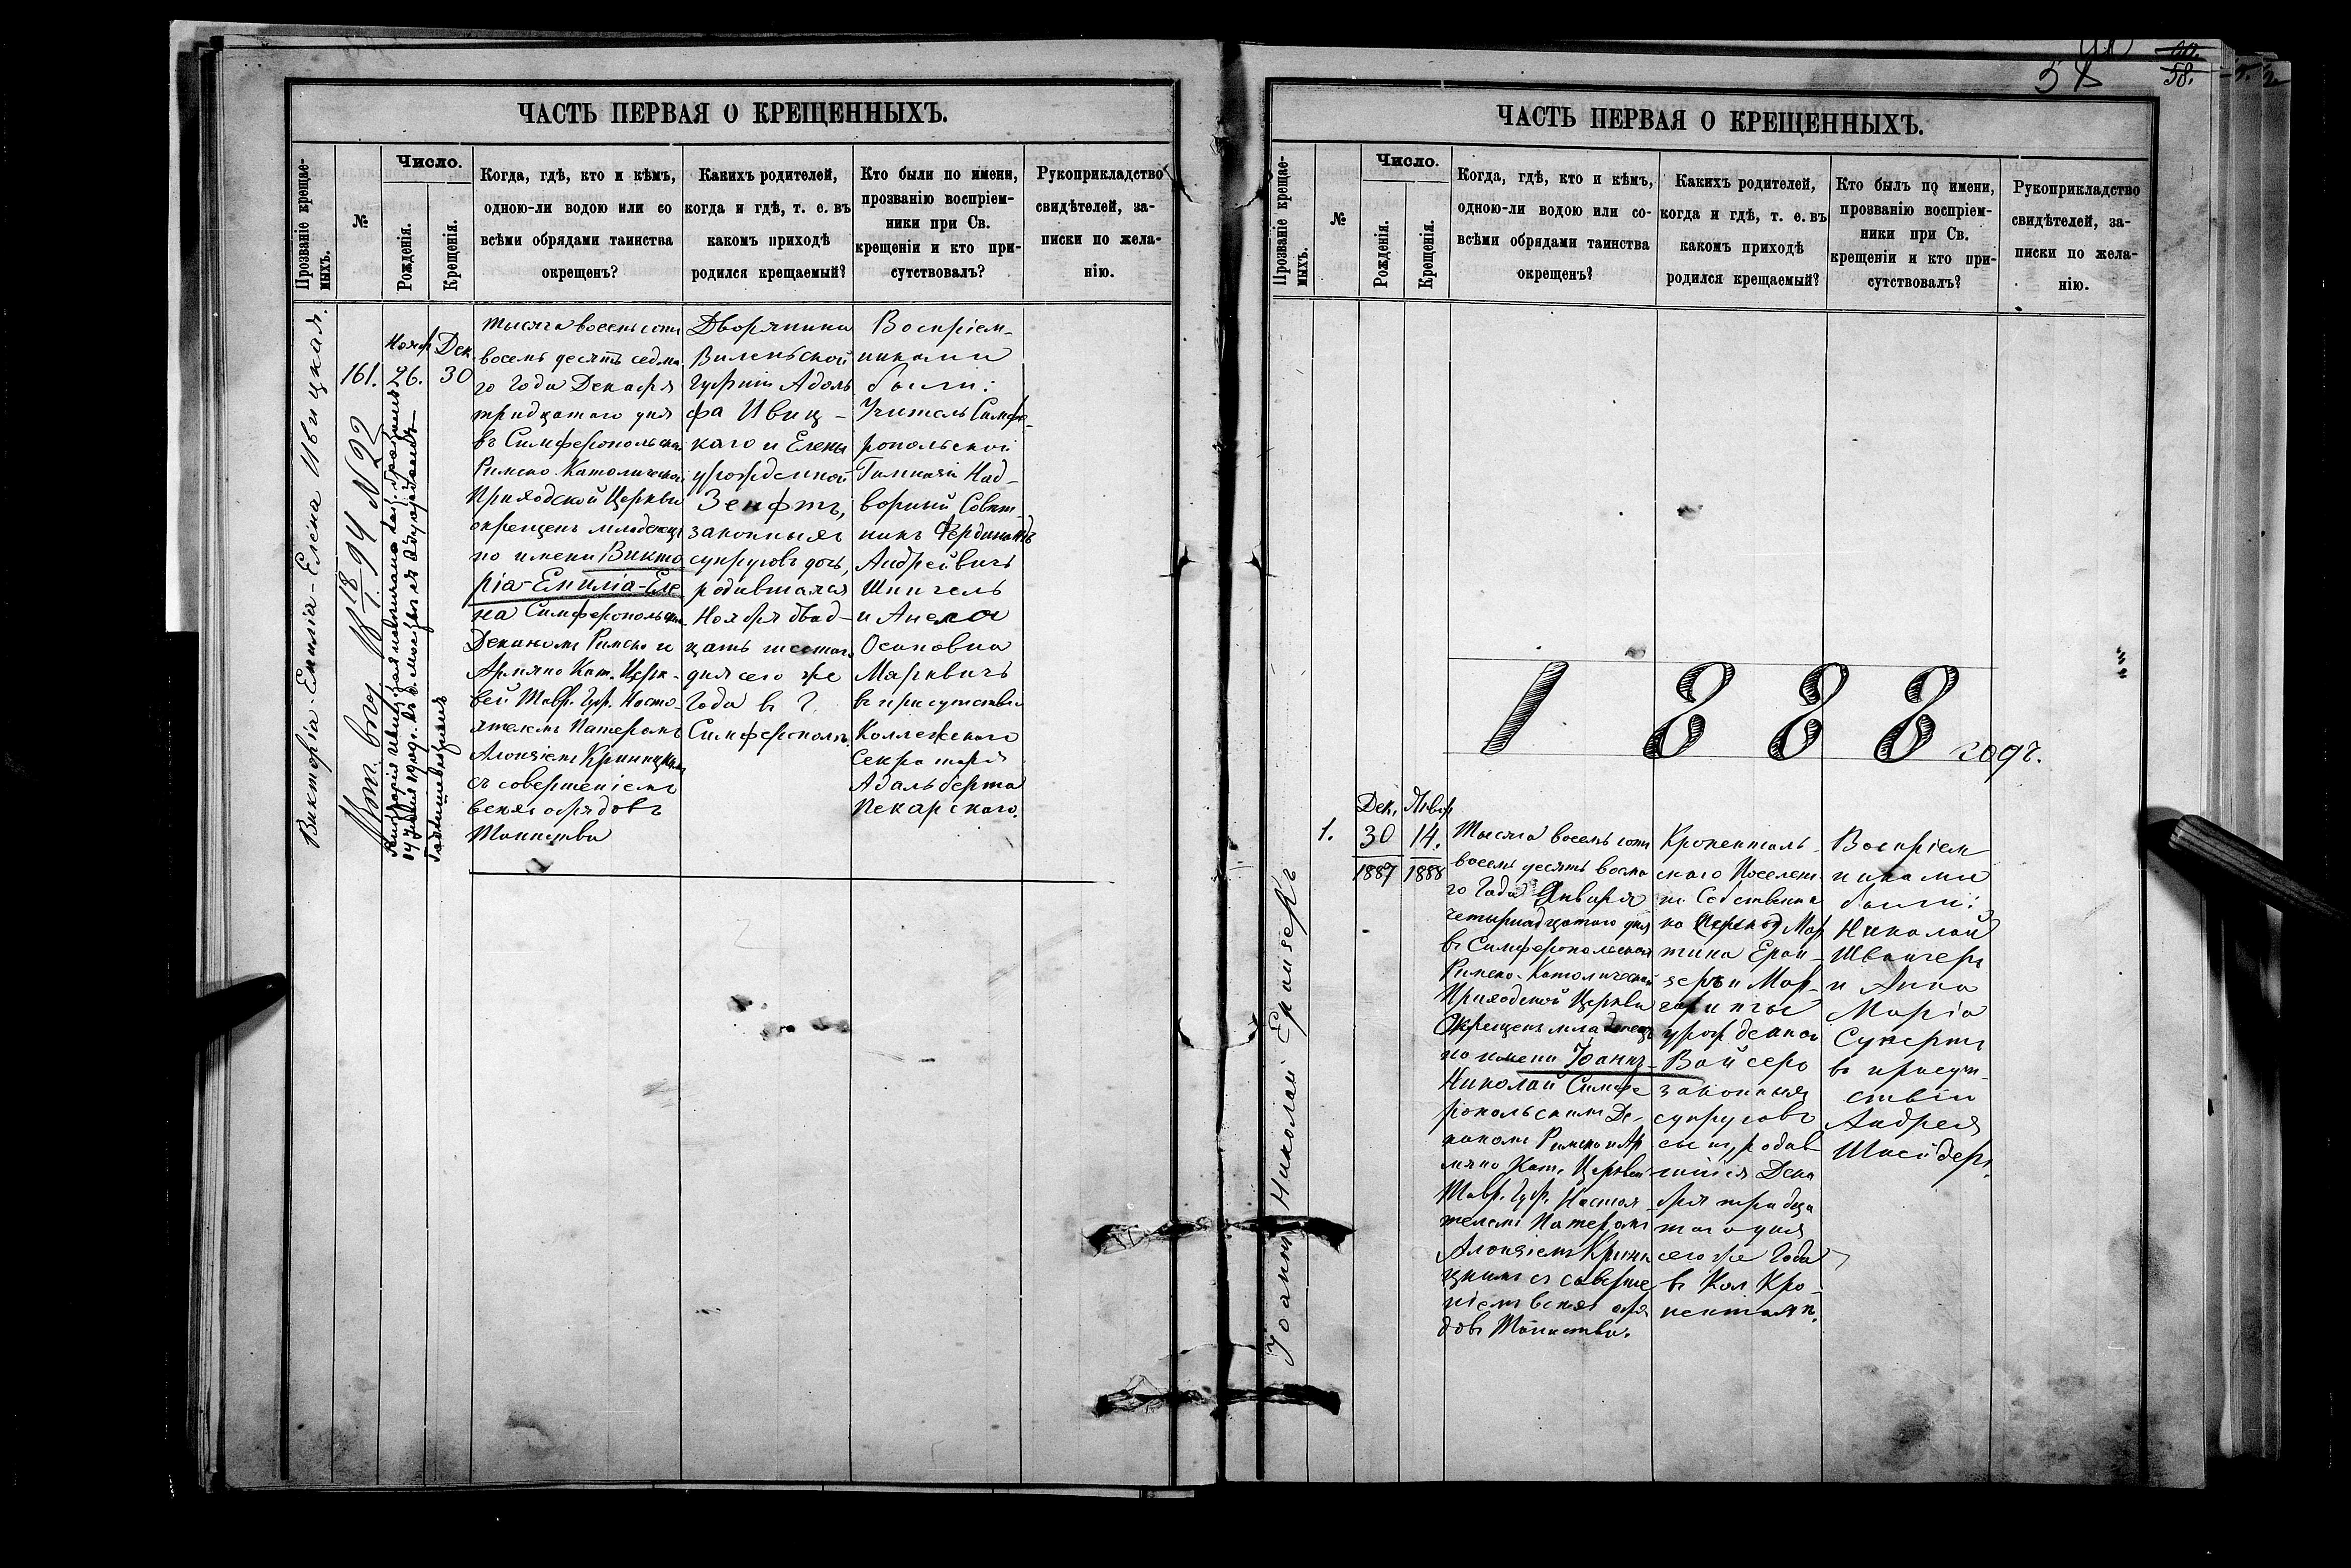 ЧАСТЬ ПЕРВАЯ О КРЕЩЕННЫХЪ.
Прозваніе крещае-
мыхъ.
№
Число.
Рожденія.
Крещенія.
Когда, гдѣ, кто и кѣмъ,
одною-ли водою или со
всѣми обрядами таинства
окрещенъ?
Какихъ родителей,
когда и гдѣ, т. е. въ
какомъ приходѣ
родился крещаемый?
Кто были по имени,
прозванію воспріем-
ники при Св.
крещеніи и кто при-
сутствовалъ?
Рукоприкладство
свидѣтелей, за-
писки по жела-
нію.
Викторія-Емилія-Елена Ивицкая.
161.
18/I 94 N 22
Нояб
26.
Дек
30
Тысяча восемьсотъ
восемьдесятъ седма
го Года Декабря
тридцатого дня
въ Симферопольской
Римско-Католической
Приходской Церкви
окрещенъ младенецъ
по имени Викто
рія-Емилія-Еле
на Симферопольским
Деканомъ Римско и
Армяно Кат. Церк-
вей Тавр. Губ. Насто-
ятелемъ Патеромъ
Алоизіемъ Криницкимъ
съ совершеніемъ
всехъ обрядовъ
Таинства
Дворянина
Виленьской
Губерніи Адоль
фа Ивиц-
каго и Елены
урожденной
Зенфтъ,
законныхъ
супруговъ дочь,
родившаяся
Ноября двад-
цать шестого
дня сего же
Года въ Г.
Симферополѣ.
Воспріем-
никами
были:
Учитель Симфе-
ропольской
Гимназіи Над-
ворный Совѣт-
никъ Фердинандъ
Андреевичъ
Шпигель
и Анела
Осиповна
Маркевичъ
въ присутствіи
Коллежского
Секретаря
Адальберта
Пекарского.
58
58.
ЧАСТЬ ПЕРВАЯ О КРЕЩЕННЫХЪ.
Прозваніе крещае-
мыхъ.
№
Число.
Рожденія.
Крещенія.
Когда, гдѣ, кто и кѣмъ,
одною-ли водою или со-
всѣми обрядами таинства
окрещенъ?
Какихъ родителей,
когда и гдѣ, т. е. въ
какомъ приходѣ
родился крещаемый?
Кто былъ по имени,
прозванію воспріем-
ники при Св.
крещеніи и кто при-
сутствовалъ?
Рукоприкладство
свидѣтелей, за-
писки по жела-
нію.
1888 годъ.
Іоаннъ Николай
1.
Дек.
30
1887
Январ
14.
1888
Тысяча восемьсотъ
восемьдесятъ восма
го Года Января
четырнадцатого дня
въ Симферопольской
Римско-Католической
Приходской Церкви
Окрещенъ младенецъ
по имени Іоаннъ-
Николай Симфе
ропольскимъ Де-
каномъ Римско и Ар
мяно Кат. Церквей
Тавр. Губ. Настоя
телемъ Патеромъ
Алоизіемъ Крини
цкимъ съ соверше
ніемъ всехъ обря
довъ Таинства.
Кроненталь
скаго Поселян
на Собственни
ка Мар
тина
и Мар-
гариты
урожденной
Вайсеръ
законныхъ
супруговъ
сынъ, родив
шійся Дека
бря тридца
того дня
сего же Года
въ Кол Кро-
ненталѣ.
Воспріем
никами
были:
Николай
и Анна
Марія
въ присут-
ствіи
Андрея
Шнейдеръ.